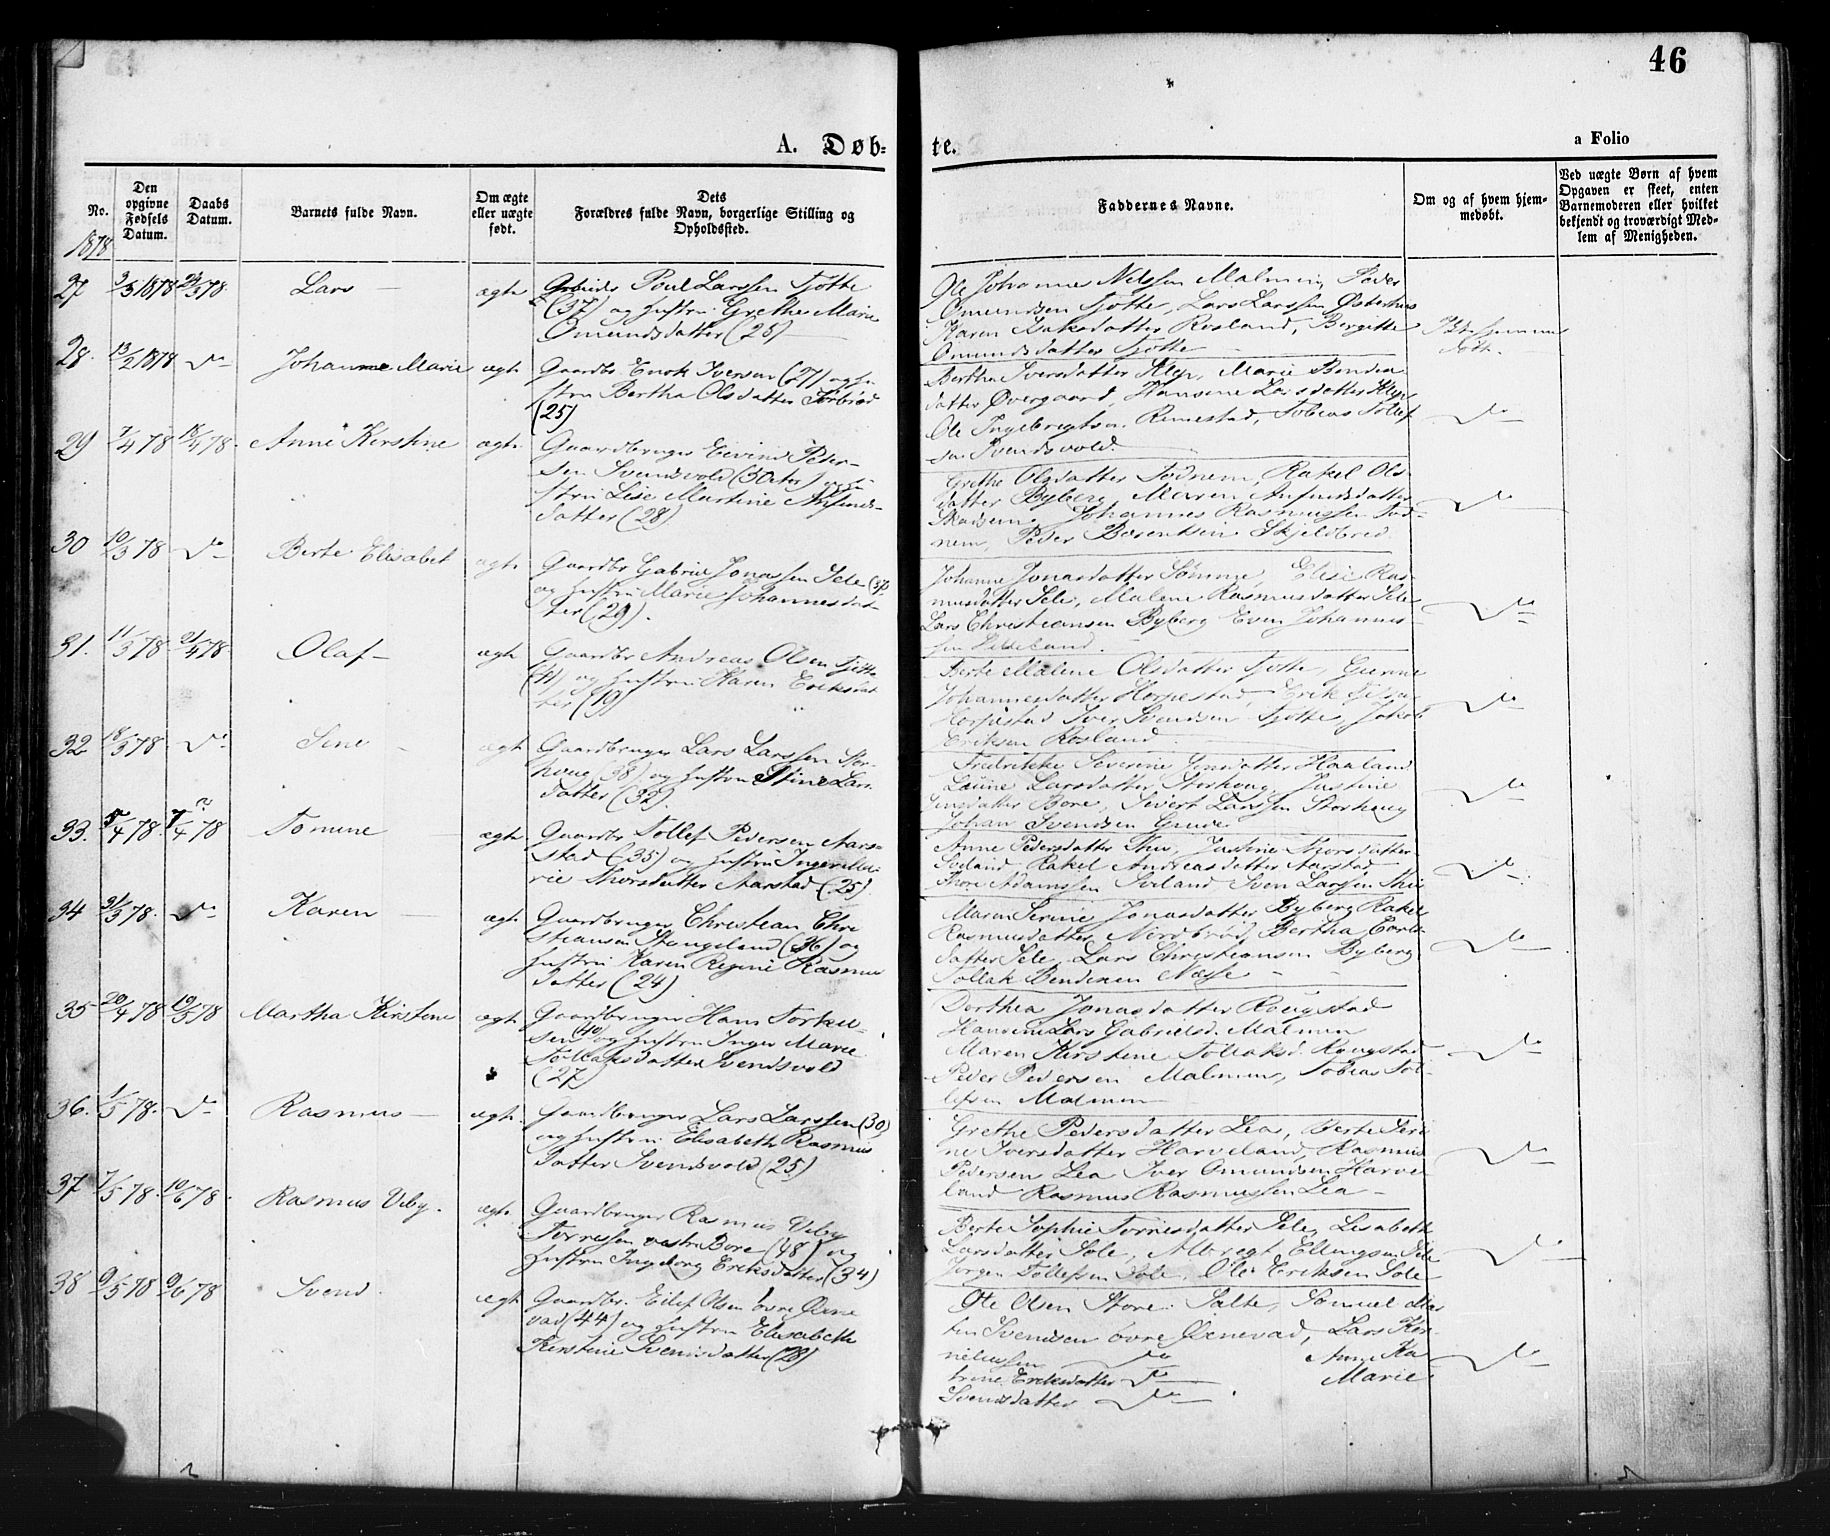 46
A. Døb-
te.
a Folio
No.
Den opgivne Fødsels Datum.
Daabs Datum.
Barnets fulde Navn.
Om ægte eller uægte født.
Dets
Forældres fulde Navn, borgerlige Stilling og
Opholdssted.
Faddernes Navne.
Om og af hvem hjem-
medøbt.
Ved uægte Børn af hvem
Opgaven er skeet, enten
Barnemoderen eller hvilket
bekjendt og troværdigt Med-
lem af Menigheden.
1878
27 3/3 1878 Lars ægte Poul Larssen Tjøtte
(37) og Hustru Grethe Marie
Omundsdatter (25)
Ole Johannes Nilssen Malmin, Peder
Omundsen Tjøtte, Lars Larssen
Karen Isaksdatter Rosland, Bergitte
Omundsdatter Tjøtte
28. 13/2 1878 Do Johanne Marie ægte Gaardbr Enok Iversen (27) og Hu-
stru Bertha Olsdatter Sørbrød
(25)
Bertha Iversdatter Klep, Marie
datter Øvergaard, Hansine Larsdatter Klep
Ole Ingebregtsen Rimestad, Tobias Tollef
sen Svendsvold.
Do
29 7/4 78 Anne Kirstine ægte Gaardbruger Eivind Peter-
sen Svendsvold (30 Aar) og Hu-
stru Lise Martine Anfinds-
datter (28)
Grethe Olsdatter Todnem, Rakel Ols-
datter Byberg, Maren Anfindsdatter
Johannes Rasmussen Tod-
nem, Peder Berentsen Skjeldbred
Do
30 10/3 78 Do Berte Elisabet ægte Gaardbr Gabriel Jonassen Sele
og Hustru Marie Johannesdat-
ter (29).
Johanne Jonasdatter Sømme, Elise Ras-
musdatter Sele, Malene Rasmusdatter Sele
Lars Christiansen Byberg Even Johannes-
sen
Do
31. 11/3 78 21/4 78 Olaf ægte Gaardbr Andreas Olsen Tjøtte
(41) og Hustru Karen Eriksdat
ter (19)
Berte Malene Olsdatter Tjøtte,
Johannesdatter Horpestad, Erik
Horpestad Iver Svendsen Tjøtte, Jakob
Eriksen Rosland
Do
32 18/3 78 Do Sine ægte Gaardbruger Lars Larssen Stor-
houg (38) og Hustru Stine Lars
datter (32)
Fredrikke Severine Jonsdatter Haaland
Larsdatter Storhoug, Justine
Jensdatter Bore, Sivert Larssen Storhoug
Johan Svendsen Grude
Do
33. 5/4 78 7/4 78 Tomine ægte Gaardbr Tollef Pedersen Aar-
stad (35) og Hustru Inger Ma-
rie Thorsdatter Aarstad (25)
Anne Pedersdatter Thu, Justine Thorsdatter
Soeland Rakel Andreasdatter Aarstad
Thore Adamssen Soeland Sven Larssen Thu
Do
34 31/3 78. Do Karen ægte Gaardbruger Christian Chri
stiansen Stangeland (36) og
Hustru Karen Regine Rasmus
datter (24)
Maren Serine Jonasdatter Byberg Rakel
Rasmusdatter Nordbrød, Bertha Carls-
datter Sele, Lars Christiansen Byberg
Tollak Bendixen Næsse
Do
35 20/4 78 19/5 78 Martha Kirstine ægte Gaardbruger Hans Torkel-
sen (40) og Hustru Inger Marie
Tollaksdatter Svendsvold
(27)
Dorthea Jonasdatter Rougstad
Hansine Lars Gabrielsd. Malmin
Maren Kirstine Tollaksd. Rougstad
Peder Pedersen Malmin, Tobias Tol-
lefsen Malmin
Do
36. 1/5 78. Do Rasmus ægte Gaardbruger Lars Larssen (30)
og Hustru Elisabeth Rasmus
datter Svendsvold (25)
Grethe Pedersdatter Lea, Berte Seri
ne Iversdatter Harveland, Rasmus
Pedersen Lea Iver Omundsen Harve
land Rasmus Rasmussen Lea
Do
37 7/5 78. 10/6 78 Rasmus Viby. ægte Gaardbruger Rasmus Viby
Torressen vestre Bore (48) og
Hustru Ingeborg Eriksdatter (34)
Berte Sophie Torresdatter Sele, Lisabeth
Larsdatter Sole, Albregt Ellingsen Sele
Jørgen Tollefsen Sole, Ole Eriksen Sole
Do
38 9/5 78 9/6 78 Svend. ægte Gaardbr. Eilef Olsen øvre Øxne
vad (44) og Hustru Elisabeth
Kirstine Svendsdatter (28)
Ole Olsen Store Salte, Samuel Mar
tin Svendsen øvre Øxnevad, Lars Kor-
neliussen Do Anne Ka
trine Eriksdatter Do Marie
Svendsdatter Do
Do